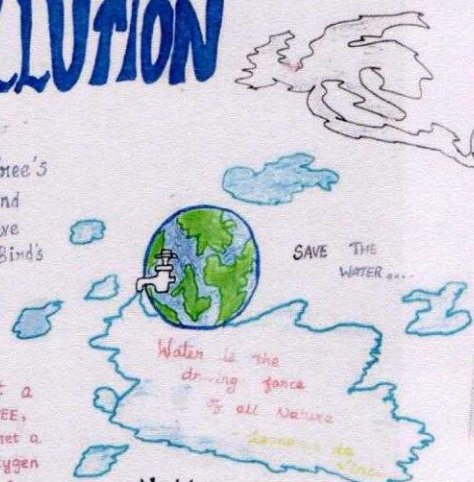 LLUTION
ree's
nd
ve
Bird's
SAVE THE
WATER....
Water is the
driving force
of all Nature
- Leonardo da
Vinci
t a
EE,
net a
ygen